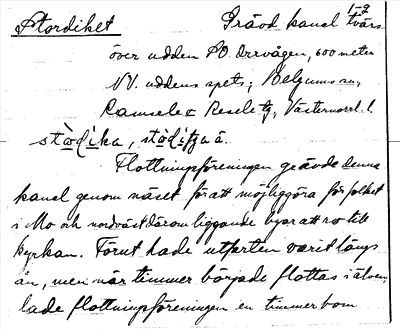 Stordiket
1-2
Grävd kanal tvärs
över udden SO. Orrvågen, 600 meter
NV. uddens spets; Helgums sn,
Ramsele o Resele tg, Västernorrl. l.
stòdìka, stòdìtja ä.
Flottningsföreningen grävde denna
kanal genom näset för att möjliggöra för folket
i Mo och nordväst därom liggande byar att ro till
kyrkan. Förut hade utfarten varit längs
ån, men när timmer började flottas i älven,
lade flottningsföreningen en timmerbom